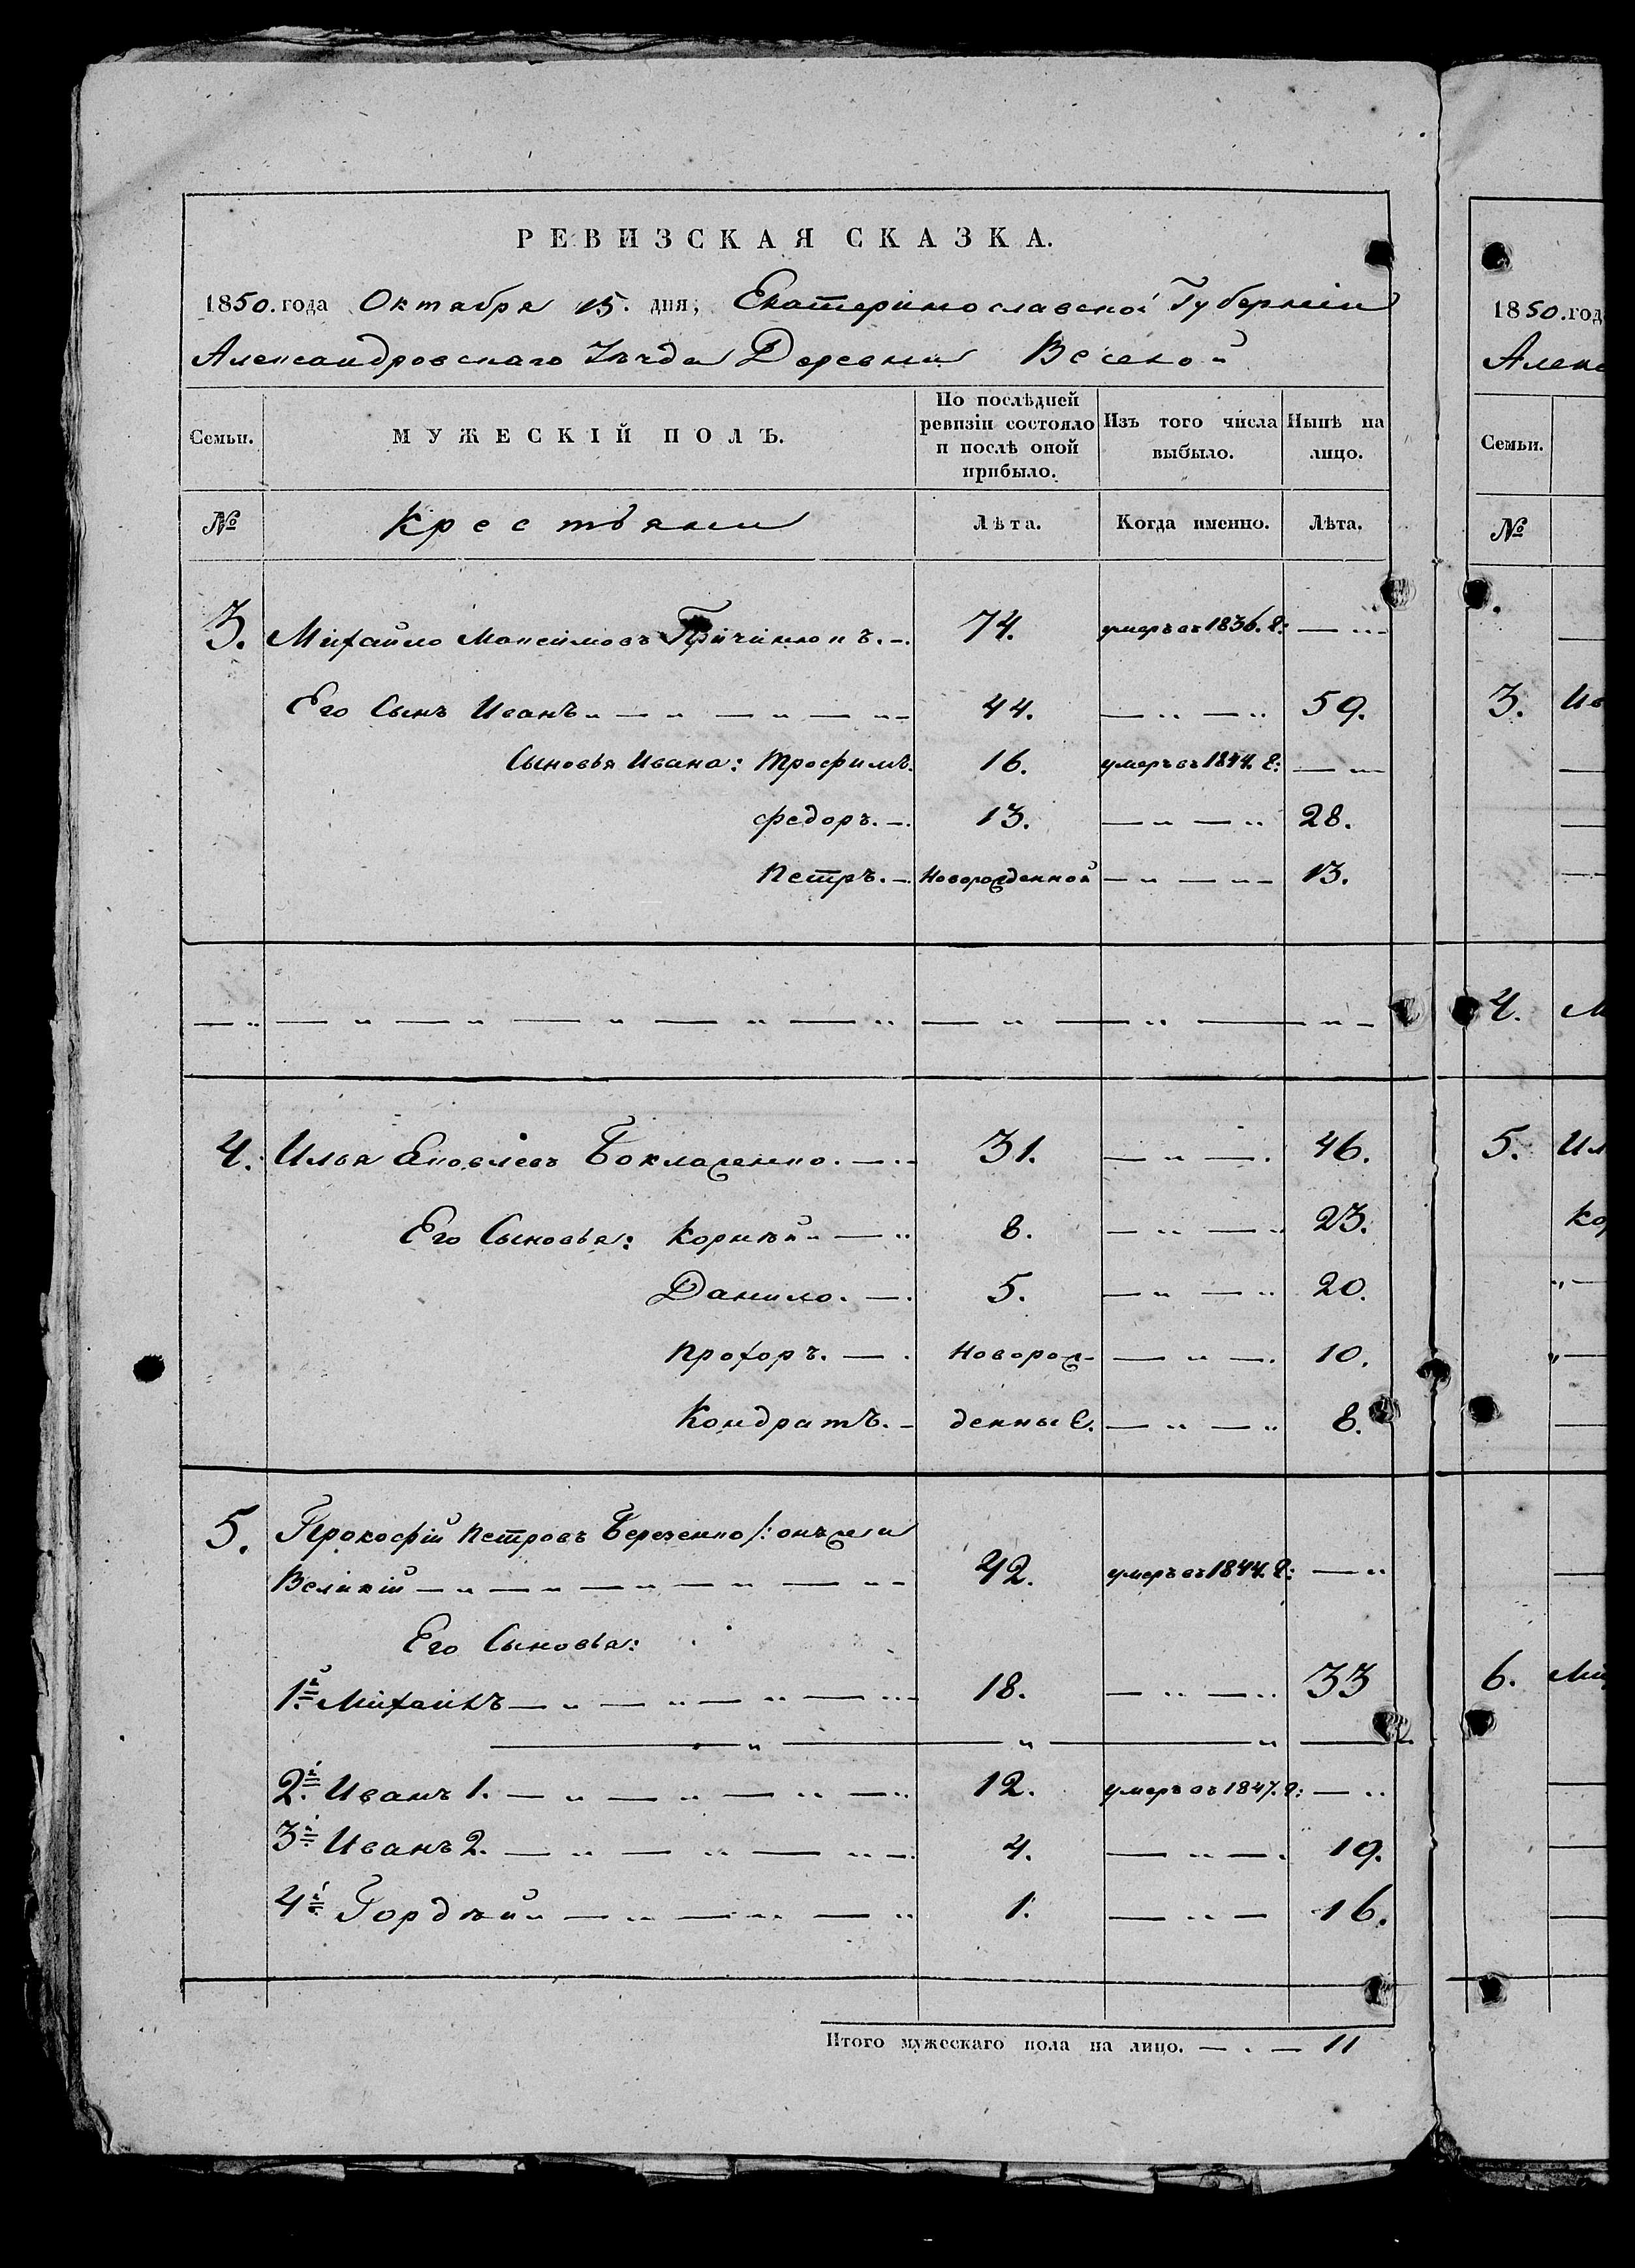 РЕВИЗСКАЯ СКАЗКА.
1850. года Октября 15. дня, Екатеринославской Губерніи
Александровскаго Уѣзда Деревни Веселой
Семьи.
МУЖЕСКІЙ ПОЛЪ.
По послѣдней ревизіи состояло и послѣ оной прибыло.
Изъ того числа выбыло.
Нынѣ на лицо.
№ Крестьяне Лѣта. Когда именно. Лѣта.
3. Михайло Максимовъ 74. умеръ въ 1836. г:
Его Сынъ Иванъ 44. 59.
Сыновья Ивана: Трофимъ. 16. умеръ въ 1844. г:
Федоръ. 13. 28.
Петръ. Новорожденной 13.
4. Илья Яковлевъ Боклаженко. 31. 46.
Его Сыновья: Корнѣй 8. 23.
Данило. 5. 20.
Прохоръ. Новорож- 10.
Кондратъ. денные. 8.
5. Прокофій Петровъ Березенко /: онъ же и
Великій 42. умеръ въ 1844. г:
Его Сыновья:
1й Михаилъ 18. 33
2й Иванъ 1. 12. умеръ въ 1847. г:
3й Иванъ 2. 4. 19.
4й Гордѣй 1. 16.
Итого мужескаго пола на лицо. 11
1850. год
Алекс
Семьи.
№
3. Ив
4. М
5. Ил
Кор
6. Мих